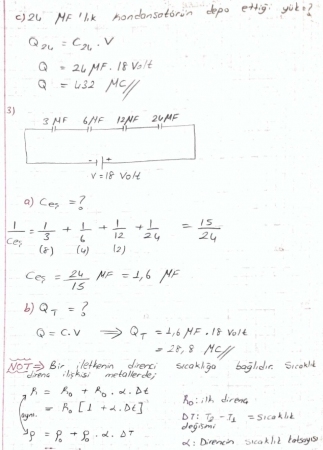 c) 24 MF'lık kondansatörün depo ettiği yük=?
Q24 = C24 . V
Q = 24 MF . 18 Volt
Q = 432 MC//
3)
3 MF 6 MF 12 MF 24 MF
- +
V = 18 Volt
a) Ceş = ?
1/Ceş = 1/3 + 1/6 + 1/12 + 1/24 = 15/24
(8) (4) (2)
Ceş = 24/15 MF = 1,6 MF
b) QT = ?
Q = C.V ⟹ QT = 1,6 MF . 18 Volt
= 28,8 MC//
NOT ⟹ Bir iletkenin direnci sıcaklığa bağlıdır. Sıcaklık
direnç ilişkisi metallerde;
R = R0 + R0 . α . Dt
R0 : ilk direnç
aynı = R0 [1 + α . Dt]
DT : T2 - T1 = sıcaklık
değişimi
ρ = ρ0 + ρ0 . α . DT
α : Direncin sıcaklık katsayısı